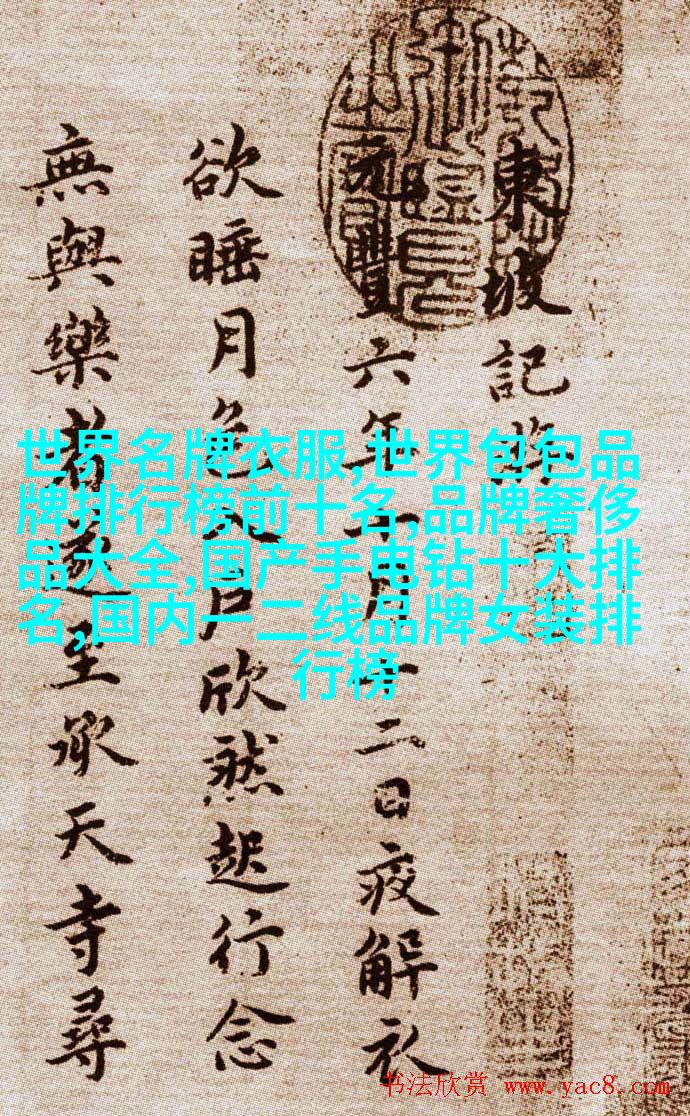 東坡記
元豐六年十月十二日夜解衣
欲睡月色入戶欣然起行念
無與樂者遂至承天寺尋
世界名牌衣服,世界包包品
牌排行榜前十名,品牌奢侈
品大全,国产手电钻十大排
名,国内一二线品牌女装排
行榜
书法欣赏 www.yac8.com